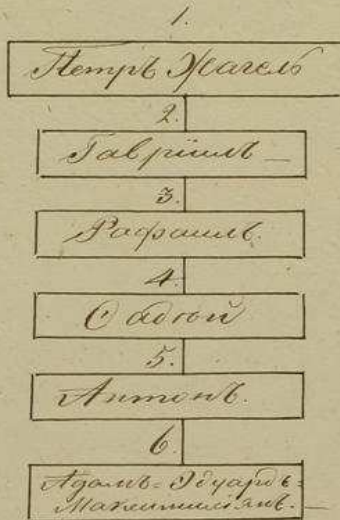 1.
Петръ Жагель
2.
Гавріилъ
3.
Рафаилъ.
4.
5.
Антонъ.
6.
Адамъ=Эдуардъ=
Максимиліанъ.